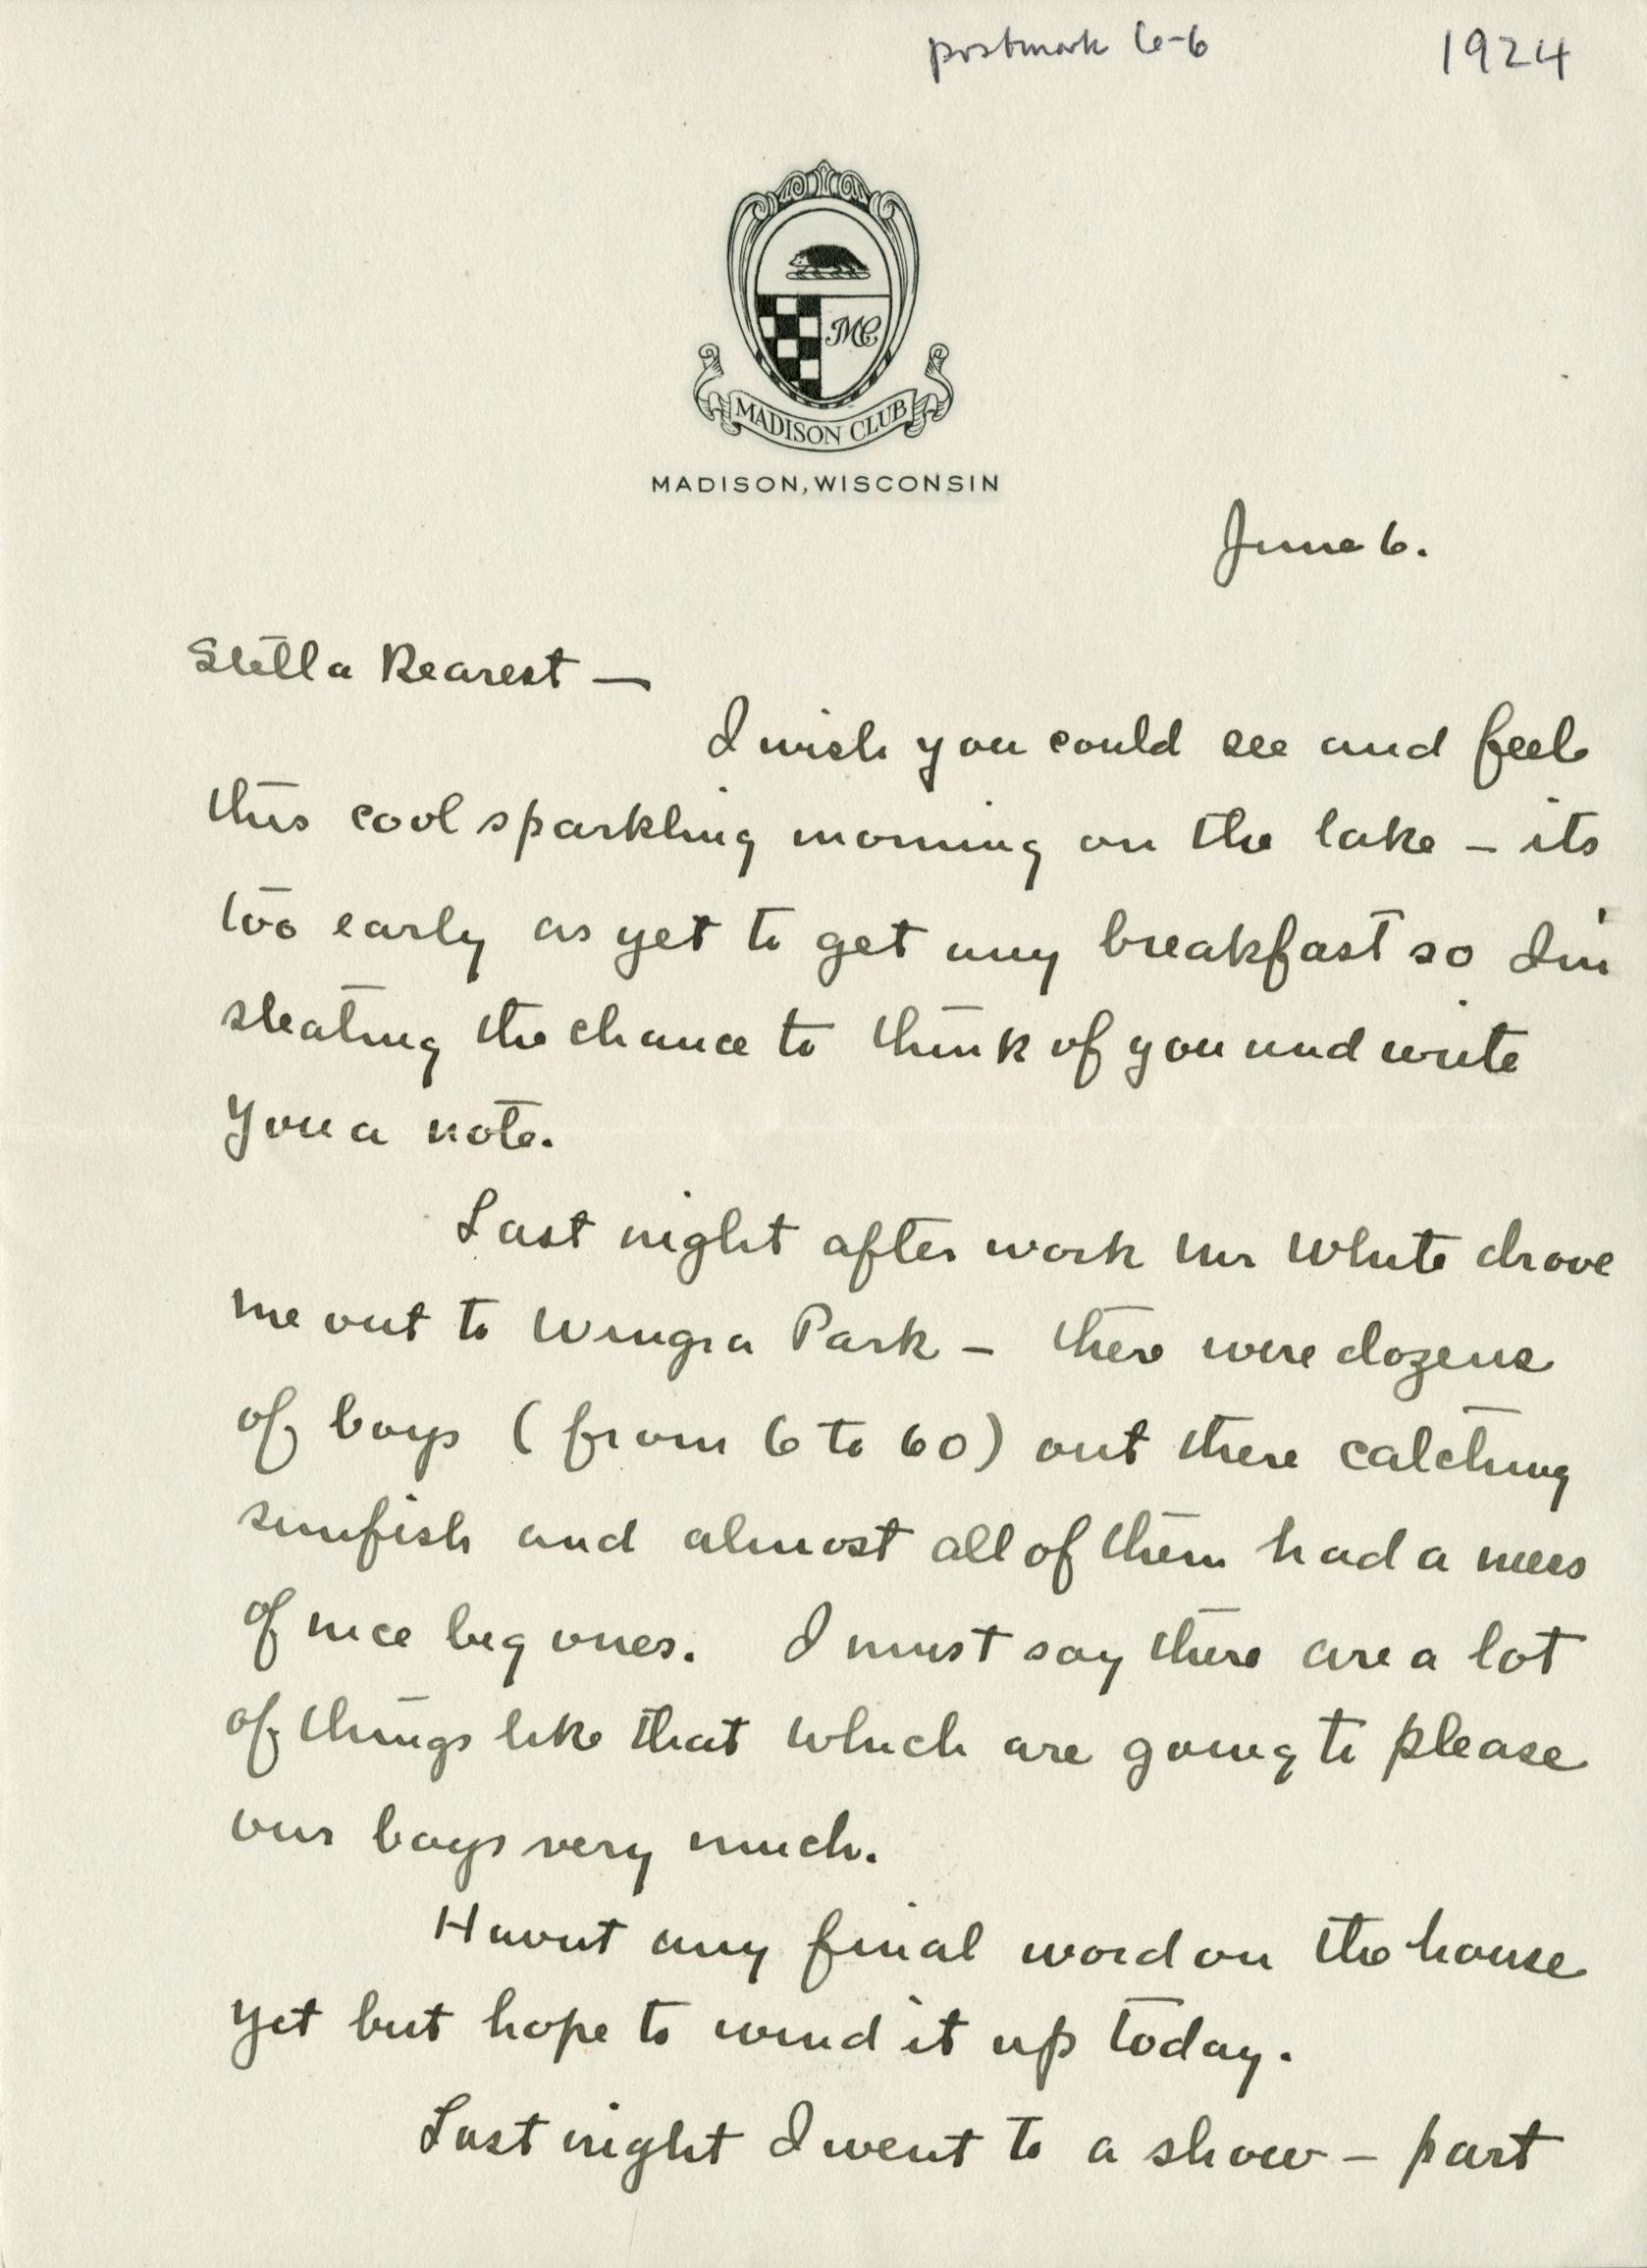 postmark 6-6 1924
MC
MADISON CLUB
MADISON, WISCONSIN
June 6.
Stella Dearest —
I wish you could see and feel
this cool sparkling morning on the lake — its
too early as yet to get any breakfast so I'm
stealing the chance to think of you and write
you a note.
Last night after work Mr White drove
me out to Wingra Park — there were dozens
of boys (from 6 to 60) out there catching
sunfish and almost all of them had a mess
of nice big ones. I must say there are a lot
of things like that which are going to please
our boys very much.
Havnt any final word on the house
yet but hope to wind it up today.
Last night I went to a show — part